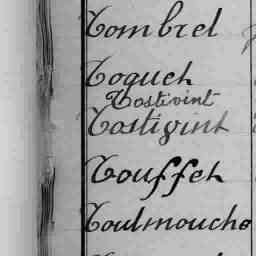 Tombrel
Toquet
Tostivint
Tostivint
Touffet
Toulmouche